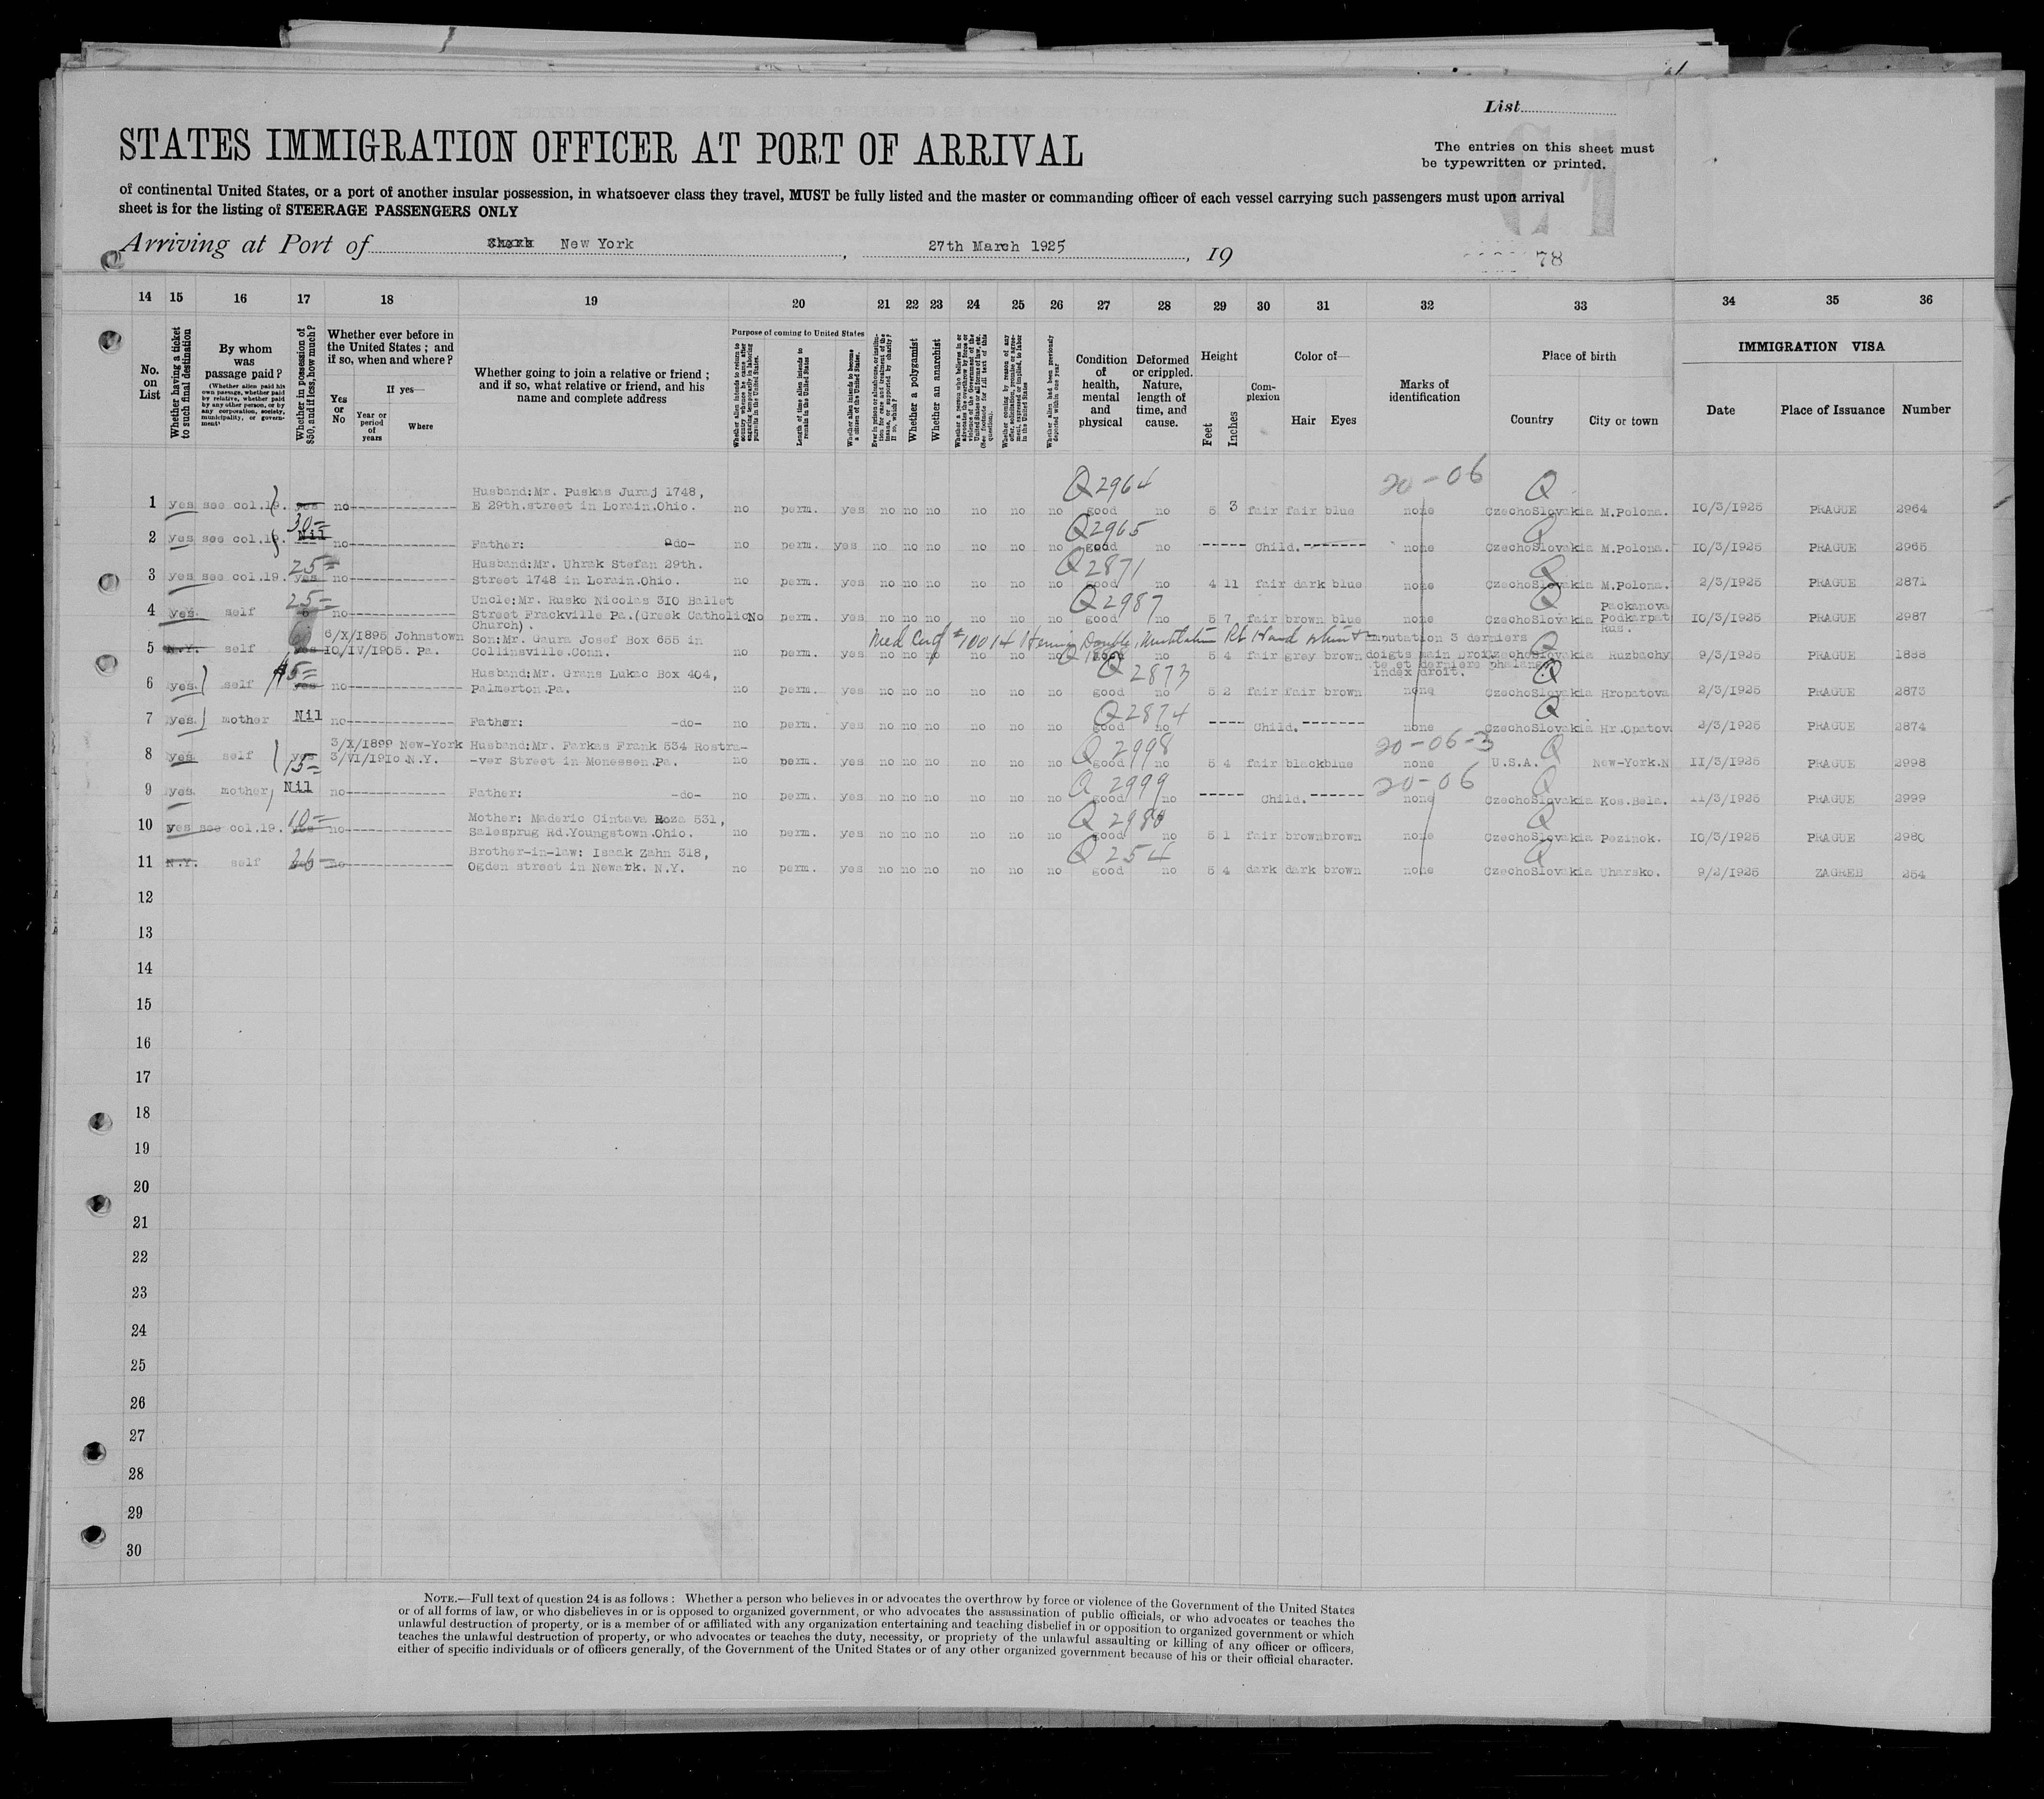 List
STATES IMMIGRATION OFFICER AT PORT OF ARRIVAL
The entries on this sheet must
be typewritten or printed.
of continental United States, or a port of another insular possession, in whatsoever class they travel, MUST be fully listed and the master or commanding officer of each vessel carrying such passengers must upon arrival
sheet is for the listing of STEERAGE PASSENGERS ONLY
Arriving at Port of New York , 27th March 1925 , 19 78
14 15 16 17 18 19 20 21 22 23 24 25 26 27 28 29 30 31 32 33 34 35 36
No. on List
Whether having a ticket to such final destination
By whom was passage paid?
(Whether alien paid his own passage, whether paid by relative, whether paid by any other person, or by any corporation, society, municipality, or government)
Whether in possession of $50, and if less, how much?
Whether ever before in the United States; and if so, when and where?
Yes or No
If yes—
Year or period of years
Where
Whether going to join a relative or friend; and if so, what relative or friend, and his name and complete address
Purpose of coming to United States
Whether alien intends to return to country whence he came after engaging temporarily in laboring pursuits in the United States.
Length of time alien intends to remain in the United States
Whether alien intends to become a citizen of the United States.
Ever in prison or almshouse, or institution for care and treatment of the insane, or supported by charity? If so, which?
Whether a polygamist
Whether an anarchist
Whether a person who believes in or advocates the overthrow by force or violence of the Government of the United States or all forms of law, etc. (See footnote for full text of this question).
Whether coming by reason of any offer, solicitation, promise or agreement, expressed or implied, to labor in the United States
Whether alien had been previously deported within one year
Condition of health, mental and physical
Deformed or crippled. Nature, length of time, and cause.
Height
Feet Inches
Complexion
Color of—
Hair Eyes
Marks of identification
Place of birth
Country City or town
IMMIGRATION VISA
Date Place of Issuance Number
Q 2964 20-06 Q
Husband:Mr. Puskas Juraj 1748,
1 yes see col.19. yes no E 29th.street in Lorain.Ohio. no perm. yes no no no no no no good no 5 3 fair fair blue none CzechoSlovakia M.Polona. 10/3/1925 PRAGUE 2964
30= Q2965 Q
2 yes see col.19. Nil no Father: -do- no perm. yes no no no no no no good no Child. none CzechoSlovakia M.Polona. 10/3/1925 PRAGUE 2965
25= Husband:Mr. Uhrak Stefan 29th. Q2871 Q
3 yes see col.19. yes no Street 1748 in Lorain.Ohio. no perm. yes no no no no no no good no 4 11 fair dark blue none CzechoSlovakia M.Polona. 2/3/1925 PRAGUE 2871
25= Uncle:Mr. Rusko Nicolas 310 Ballet Q2987 Q Packanova
4 yes. self no Street Frackville Pa.(Greek Catholic No perm. yes no no no no no no good no 5 7 fair brown blue none CzechoSlovakia Podkarpat 10/3/1925 PRAGUE 2987
Church). Rus.
6/X/1895 Johnstown Son:Mr. Gaura Josef Box 655 in Med Cert #10014 Hernia Double, Mutilation Rt Hand amputation 3 derniers Q
5 N.Y. self yes 10/IV/1905. Pa. Collinsville.Conn. no perm. yes no no no no no no good no 5 4 fair grey brown doigts main Droi CzechoSlovakia Ruzbachy 9/3/1925 PRAGUE 1888
te et derniere phalange
index droit.
15= Husband:Mr. Grans Lukac Box 404, Q2873 Q
6 yes. self yes no Palmerton.Pa. no perm. yes no no no no no no good no 5 2 fair fair brown none CzechoSlovakia Hropatova 2/3/1925 PRAGUE 2873
Q2874 Q
7 yes. mother Nil no Father: -do- no perm. yes no no no no no no good no Child. none CzechoSlovakia Hr.Opatova 2/3/1925 PRAGUE 2874
3/X/1899 New-York Husband:Mr. Farkas Frank 534 Rostra- Q 2998 20-06-3 Q
8 yes self yes 3/VI/1910.N.Y. -ver Street in Monessen.Pa. no perm. yes no no no no no no good no 5 4 fair black blue none U.S.A. New-York.N 11/3/1925 PRAGUE 2998
15= Q 2999 20-06 Q
9 yes. mother Nil no Father: -do- no perm. yes no no no no no no good no Child. none CzechoSlovakia Kos.Bela. 11/3/1925 PRAGUE 2999
10= Mother: Maderic Cintava Roza 531, Q 2980 Q
10 yes see col.19. yes no Salesprug Rd.Youngstown.Ohio. no perm. yes no no no no no no good no 5 1 fair brown brown none CzechoSlovakia Pezinok. 10/3/1925 PRAGUE 2980
Brother-in-law: Isaak Zahn 318, Q 254 Q
11 N.Y. self no Ogden street in Newark. N.Y. no perm. yes no no no no no no good no 5 4 dark dark brown none CzechoSlovakia Uharsko. 9/2/1925 ZAGREB 254
12
13
14
15
16
17
18
19
20
21
22
23
24
25
26
27
28
29
30
NOTE.—Full text of question 24 is as follows: Whether a person who believes in or advocates the overthrow by force or violence of the Government of the United States
or of all forms of law, or who disbelieves in or is opposed to organized government, or who advocates the assassination of public officials, or who advocates or teaches the
unlawful destruction of property, or is a member of or affiliated with any organization entertaining and teaching disbelief in or opposition to organized government or which
teaches the unlawful destruction of property, or who advocates or teaches the duty, necessity, or propriety of the unlawful assaulting or killing of any officer or officers,
either of specific individuals or of officers generally, of the Government of the United States or of any other organized government because of his or their official character.